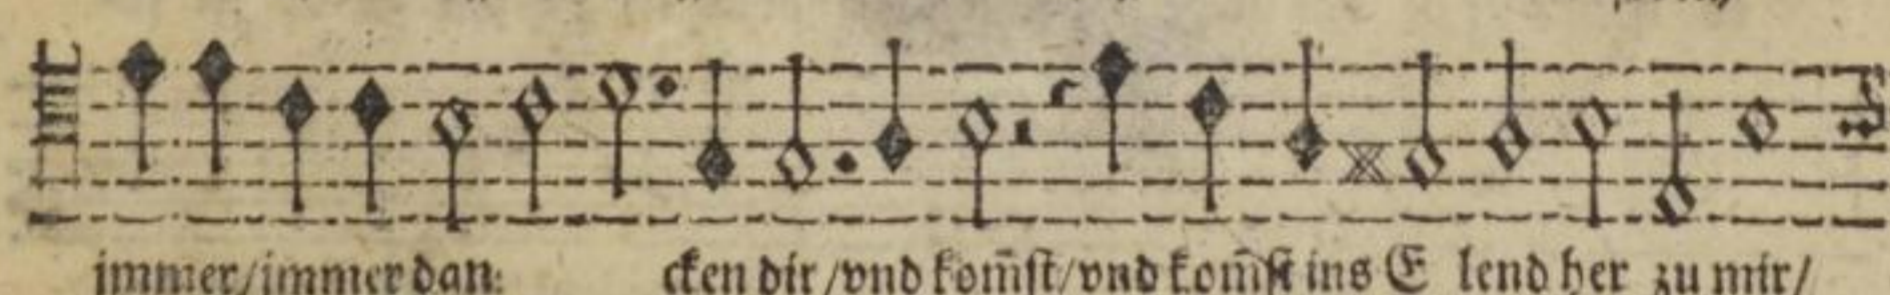 jmmer/jmmer dan: cken dir/vnd kom̃st/vnd kom̃st ins E lend her zu mir/